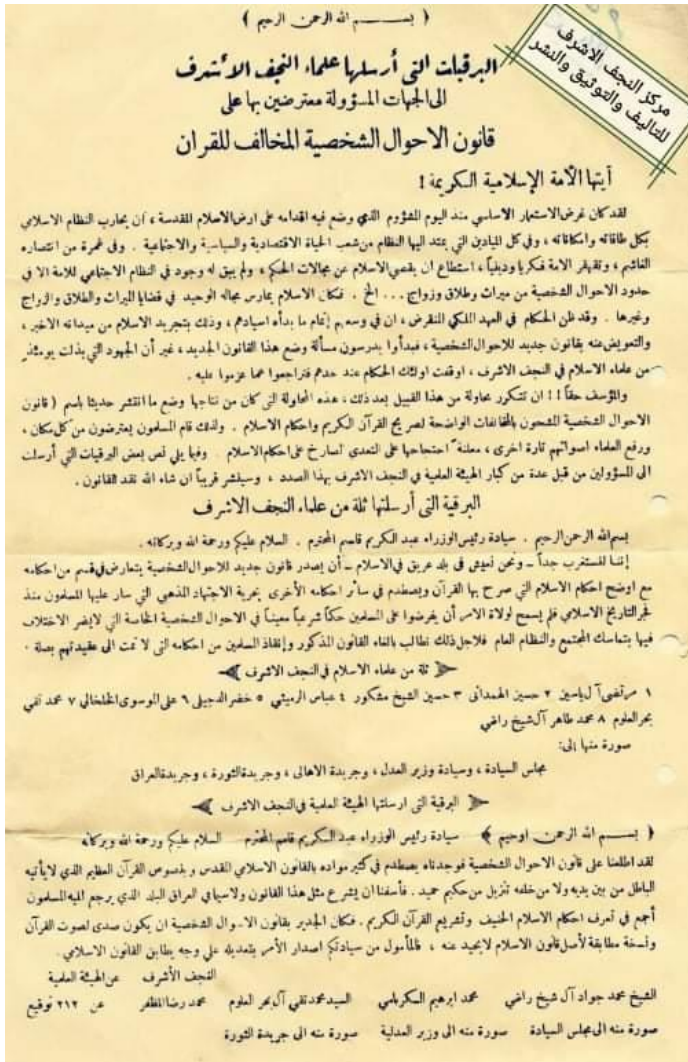 ( بســـم الله الرحمن الرحيم )
مركز النجف الاشرف
للتأليف والتوثيق والنشر
البرقيات التي أرسلها علماء النجف الأشرف
الى الجهات المسؤولة معترضين بها على
قانون الاحوال الشخصية المخالف للقران
أيتها الأمة الإسلامية الكريمة !
لقد كان غرض الاستعمار الاساسي منذ اليوم المشؤوم الذي وضع فيه اقدامه على ارض الاسلام المقدسة ، ان يحارب النظام الاسلامي
بكل طاقاته وامكاناته ، وفي كل الميادين التي يمتد اليها النظام من شعب الحياة الاقتصادية والسياسية والاجتماعية . وفي غمرة من انتصاره
الغاشم ، وتقهقر الامة فكريا ودينياً ، استطاع ان يقصي الاسلام عن مجالات الحكم ، ولم يبق له وجود في النظام الاجتماعي للامة الا في
حدود الاحوال الشخصية من ميراث وطلاق وزواج ... الخ . فكان الاسلام يمارس مجاله الوحيد في قضايا الميراث والطلاق والزواج
وغيرها . وقد ظن الحكام في العهد الملكي المنقرض ، ان في وسعهم إتمام ما بدأه اسيادهم ، وذلك بتجريد الاسلام من ميدانه الاخير ،
والتعويض عنه بقانون جديد للاحوال الشخصية ، فبدأوا يدرسون مسألة وضع هذا القانون الجديد ، غير أن الجهود التي بذلت يومئذ
من علماء الاسلام في النجف الاشرف ، اوقفت اولئك الحكام عند حدهم فتراجعوا عما عزموا عليه .
والمؤسف حقاً !! ان تتكرر محاولة من هذا القبيل بعد ذلك ، هذه المحاولة التي كان من نتاجها وضع ما انتشر حديثا باسم ( قانون
الاحوال الشخصية المشحون بالمخالفات الواضحة لصريح القرآن الكريم واحكام الاسلام . ولذلك قام المسلمون يعترضون من كل مكان ،
ورفع العلماء اصواتهم تارة اخرى ، معلنة احتجاجها على التعدي الصارخ على احكام الاسلام . وفيما يلي نص بعض البرقيات التي أرسلت
الى المسؤولين من قبل عدة من كبار الهيئة العلمية في النجف الاشرف بهذا الصدد ، وسينشر قريباً ان شاء الله نقد القانون .
البرقية التي أرسلتها ثلة من علماء النجف الاشرف
بسم الله الرحمن الرحيم . سيادة رئيس الوزراء عبد الكريم قاسم المحترم . السلام عليكم ورحمة الله وبركاته .
إننا لنستغرب جداً ــ ونحن نعيش في بلد عريق في الاسلام ــ أن يصدر قانون جديد للاحوال الشخصية يتعارض في قسم من احكامه
مع اوضح احكام الاسلام التي صرح بها القرآن ويصطدم في سائر احكامه الأخرى بحرية الاجتهاد المذهبي التي سار عليها المسلمون منذ
فجر التاريخ الاسلامي فلم يسمح لولاة الامر أن يفرضوا على المسلمين حكماً شرعياً معيناً في الاحوال الشخصية الخاصة التي لا يضر الاختلاف
فيها بتماسك المجتمع والنظام العام فلاجل ذلك نطالب بالغاء القانون المذكور وإنقاذ المسلمين من احكامه التي لا تمت الى عقيدتهم بصلة .
ثلة من علماء الاسلام في النجف الاشرف
١ مرتضى آل ياسين ٢ حسين الهمداني ٣ حسين الشيخ مشكور ٤ عباس الرميثي ٥ خضر الدجيلي ٦ علي الموسوي الخلخالي ٧ محمد تقي
بحر العلوم ٨ محمد طاهر آل شيخ راضي
صورة منها إلى:
مجلس السيادة ، وسيادة وزير العدل ، وجريدة الاهالي ، وجريدة الثورة ، وجريدة العراق
البرقية التي ارسلتها الهيئة العلمية في النجف الاشرف
( بســـم الله الرحمن الرحيم ) سيادة رئيس الوزراء عبد الكريم قاسم المحترم السلام عليكم ورحمة الله وبركاته
لقد اطلعنا على قانون الاحوال الشخصية فوجدناه يصطدم في كثير مواده بالقانون الاسلامي المقدس وبنصوص القرآن العظيم الذي لا يأتيه
الباطل من بين يديه ولا من خلفه تنزيل من حكيم حميد . فأسفنا ان يشرع مثل هذا القانون ولاسيما في العراق البلد الذي يرجع اليه المسلمون
أجمع في تعرف احكام الاسلام الحنيف وتشريع القرآن الكريم . فكان الجدير بقانون الاحوال الشخصية ان يكون صدى لصوت القرآن
ونسخة مطابقة لأصل قانون الاسلام لا يحيد عنه ، فالمأمول من سيادتكم اصدار الأمر بتعديله على وجه يطابق القانون الاسلامي .
النجف الأشرف عن الهيئة العلمية
الشيخ محمد جواد آل شيخ راضي محمد ابرهيم الكرباسي السيد محمد تقي آل بحر العلوم محمد رضا المظفر عن ٢١٢ توقيع
صورة منه الى مجلس السيادة صورة منه الى وزير العدلية صورة منه الى جريدة الثورة